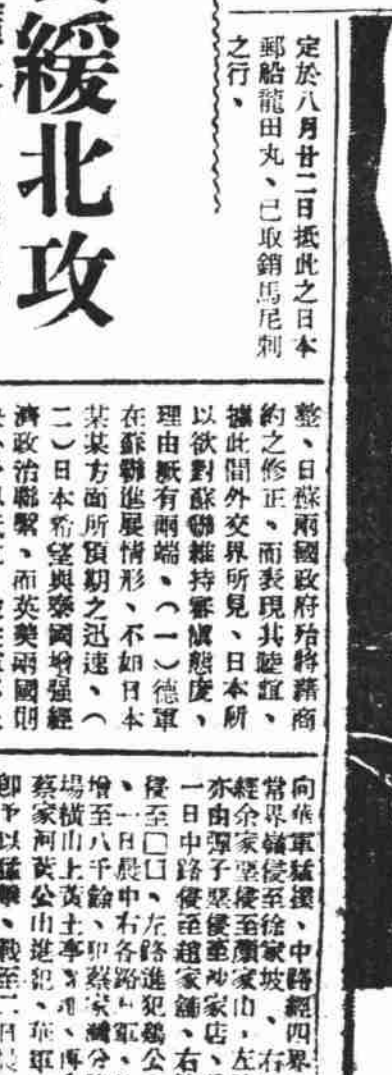 緩北攻
定於八月廿二日抵此之日本
郵船龍田丸、已取銷馬尼剌
之行、
整、日蘇兩國政府殆將藉商
約之修正、而表現其睦誼、
據此間外交界所見、日本所
以欲對蘇聯維持審慎態度、
理由厥有兩端、(一)德軍
在蘇聯進展情形、不如日本
某某方面所預期之迅速、(
二)日本希望與泰國增强經
濟政治聯繫、而英美兩國則
向華軍猛撲、中路經四界
常界嶺侵至徐家坡、右
經余家惡侵至顏家山、左
亦由彈子惡侵至沙家店、
一日中路侵至趙家舖、右
侵至□□、左路進犯鷄公
、一日晨中右各路軍、
增至八千餘、即蔡家灣分
場橫山上黃土亭
蔡家河黃公山進犯、華軍
卽予以猛擊、戰至二日晨